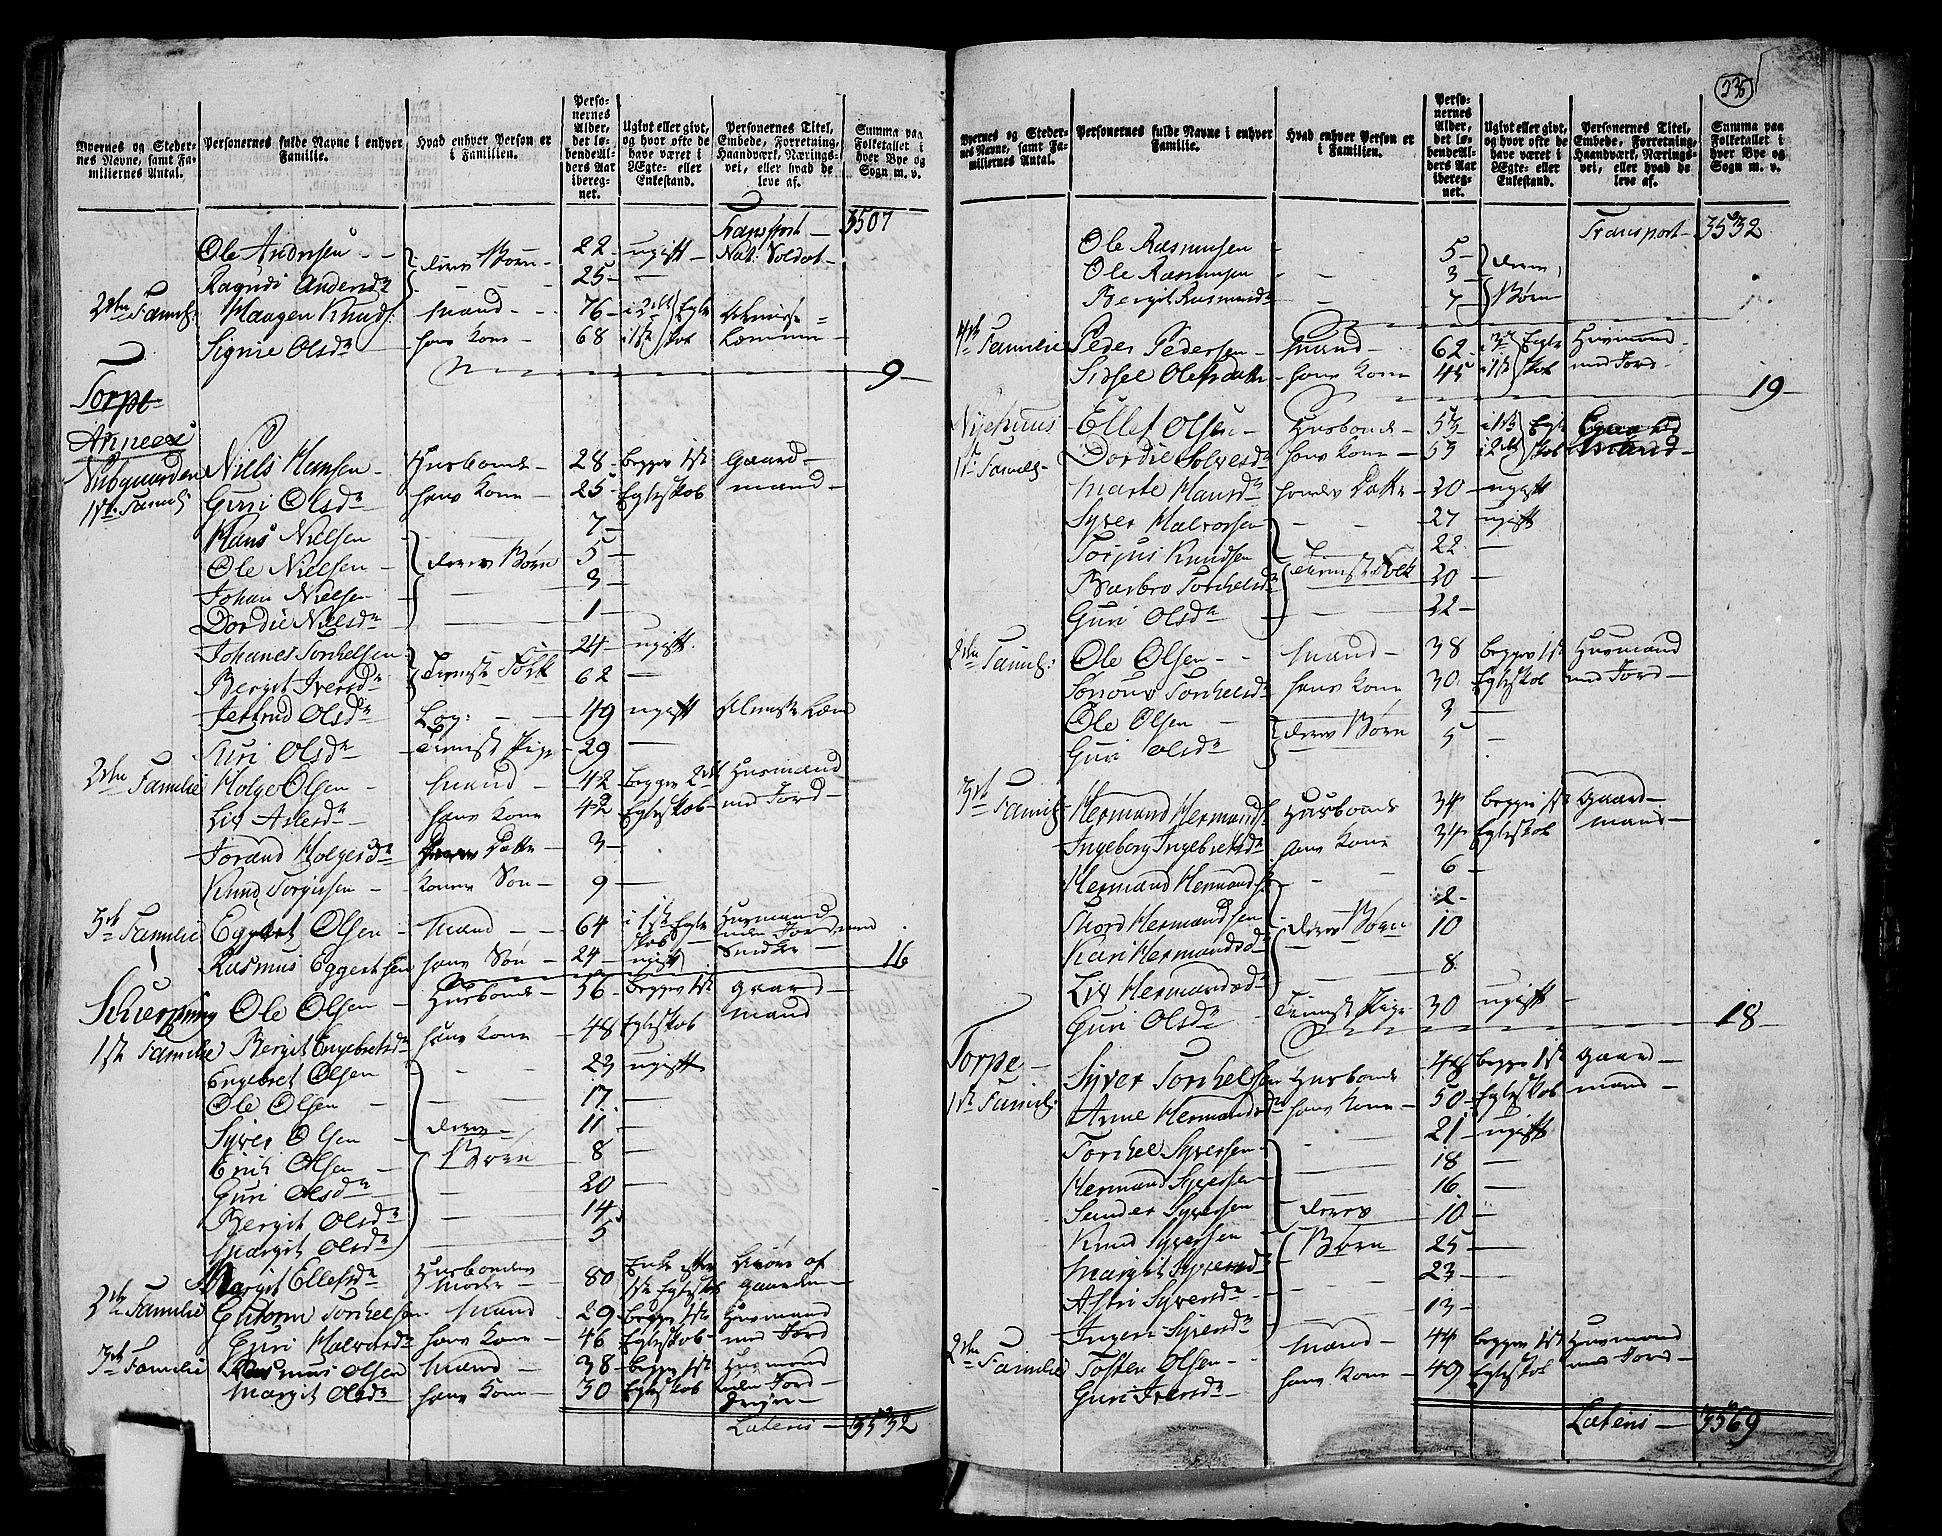 Byernes og Stedernes Navne, samt Familiernes Antal. | Personernes fulde Navne i enhver Familie. | Hvad enhver Person er i Familien. | Personernes Alder, det løbende Alders Aar iberegnet. | Ugivt eller givt, og hvor ofte de have været i Ægte- eller Enkestand. | Personernes Titel, Embede, Forretning, Haandværk, Næringsvei, eller hvad de leve af. | Summa paa Folketallet i hver Bye og Sogn m. v.
Transport — 3507
Ole Andersen - - | deres Børn | 22 — ugift — Nat: Soldat
Ragndi Andersdr | 25 —
2den Famil: Haagen Knuds: | Mand | 76 — i 2det Egte | Almisse =
Signe Olsdr | hans Kone | 68 — i 1ste skab | Lemmer
9 —
Torpe
Annex
Niels Hansen — Husbonde — 28 — begge 1ste Gaard —
1ste Famil: Guri Olsdr — hans Kone — 25 — Egteskab mand —
Hans Nielsen 7 —
Ole Nielsen — deres Børn 5 —
Johan Nielsen 3 —
Dordie Nielsdr 1 —
Johanes Torkelsen 24 — ugift
Bergit Iversdr — Tieneste Folk 62 —
Olsdr — Log: — 49 — ugift Almisse Lem
Kuri Olsdr — Tieneste Pige — 29 —
2den Familie Holge Olsen — Mand — 42 — begge 2det Husmand
Liv Aslesdr — hans Kone 42 — Egteskab — med Jord —
Jorand Holgersdr — deres Datter — 3 —
Knud Torgissen — Konens Søn — 9 —
3de Familie Eggert Olsen — Mand — 64 i 1ste Egteskab Husmand uden Jord
Rasmus Eggertsen hans Søn — 24 — ugift Snedker 16
Ole Olsen — Husbonde — 56 — begge 1ste Gaard —
1ste Familie Bergit Engebretsdr hans Kone — 48 Egteskab mand
Engebret Olsen 23 ugift
Ole Olsen — 17 —
Syver Olsen — deres — 11 —
Erich Olsen — Børn 8 —
Guri Olsdr 20 —
Bergit Olsdr 14
Margit Olsdr 5
Margit Ellefsdr Husbondens Moder 80 Enke efter 1ste Egteskab af gaarden
2den Familie Guttorm Torkelsen Mand — 29 begge 1ste Husmand
Guri Halvordr hans Kone — 46 Egteskab — med Jord
3de Familie Rasmus Olsen Mand — 38 — begge 1ste Husmand
Margit Olsdr — hans Kone — 30 Egteskab uden Jord
Lateris — 3532
235
Byernes og Stedernes Navne, samt Familiernes Antal. | Personernes fulde Navne i enhver Familie. | Hvad enhver Person er i Familien. | Personernes Alder, det løbende Alders Aar iberegnet. | Ugivt eller givt, og hvor ofte de have været i Ægte- eller Enkestand. | Personernes Titel, Embede, Forretning, Haandværk, Næringsvei, eller hvad de leve af. | Summa paa Folketallet i hver Bye og Sogn m. v.
Transport — 3532
Ole Rasmusen 5 —
Ole Rasmusen 3 — deres
Bergit Rasmusdr 7 — Børn
4de Familie Peder Pedersen — Mand — 62 — i 3de Egte Husmand
Sidsel Olesdatter — hans Kone 45 i 1ste skab med Jord
19 —
Nyehuus Ellef Olsen — Husbonde — 53 i 1ste Egte
1ste Famil: Dordie Solvesdr hans Kone — 53 i 2det skab
Marte Hansdr — Datter — 20 — ugift
Syver Halvorsen 27 ugift
Torjus Knudsen 22 —
Barbro Torkelsdr — Tieneste Folk 20 —
Guri Olsdr 22 —
2den Famil: Ole Olsen — Mand — 38 begge 1ste Husmand
Torkelsdr hans Kone 30 Egteskab med Jord —
Ole Olsen 3 —
Guri Olsdr — deres Børn 5 —
3de Famil: Hermand Hermands: Husbonde 34 begge 1ste Gaard —
Ingeborg Ingebretsdr hans Kone 34 Egteskab mand —
Hermand Hermands: 6 —
2 —
Thord Hermandsen — deres Børn 10
Kari Hermandsdr 8
Liv Hermandsdr
Guri Olsdr — Tieneste Pige 30 ugift —
18 —
Torpe — Syver Torkelsen Husbonde — 48 begge 1ste Gaard —
1ste Famil: Anne Hermandsdr hans Kone — 50 — Egteskab mand —
Torkel Syversen 21 — ugift
Hermand Syversen 18 —
Sander Syversen — deres 16 —
Knud Syversen — Børn 10 —
Margit Syversdr 25 —
Astri Syversdr 23 —
Ingeri Syversdr 13 —
2den Familie Tosten Olsen — Mand — 44 begge 1ste Husmand
Guri Iversdr — hans Kone — 49 Egteskab med Jord —
Lateris — 3569